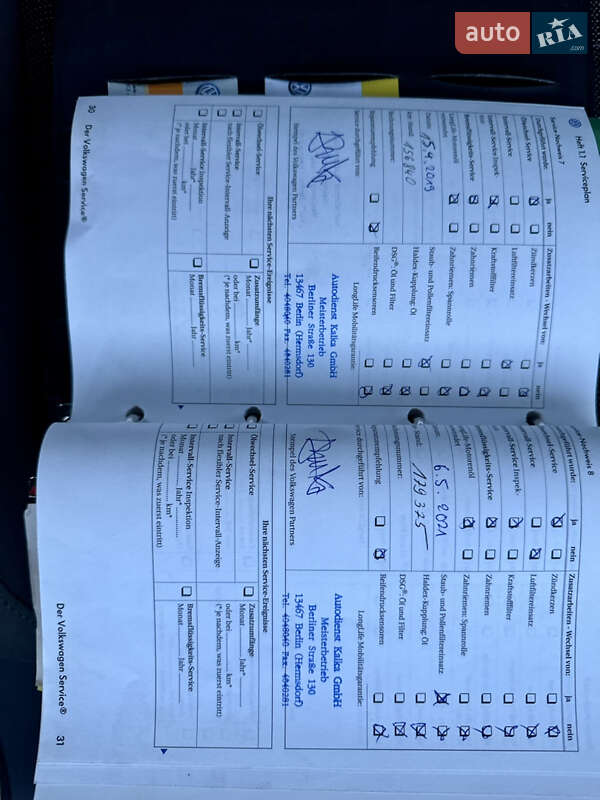 auto
RIA
.com
Heft 1.1 Serviceplan
Service-Nachweis 7
Durchgeführt wurde:
ja
nein
Zusatzarbeiten - Wechsel von:
ja
nein
Ölwechsel-Service
Zündkerzen
Intervall-Service
Luftfiltereinsatz
Intervall-Service Inspek-
tion
Kraftstofffilter
Bremsflüssigkeits-Service
Zahnriemen
LongLife-Motorenöl
verwendet
Zahnriemen-Spannrolle
Datum:
15.4.2019
Staub- und Pollenfiltereinsatz
km-Stand:
156 840
Haldex-Kupplung: Öl
DSG®: Öl und Filter
Reparaturempfehlung
Reifendrucksensoren
Service durchgeführt von:
LongLife Mobilitätsgarantie:
Autodienst Kalka GmbH
Meisterbetrieb
Berliner Straße 130
13467 Berlin (Hermsdorf)
Tel. 4048040 Fax 4840281
Stempel des Volkswagen Partners
Ihre nächsten Service-Ereignisse
Ölwechsel-Service
Intervall-Service
nach flexibler Service-Intervall-Anzeige
Intervall-Service Inspektion
Monat Jahr*
oder bei km*
(* je nachdem, was zuerst eintritt)
Zusatzumfänge
Monat Jahr*
oder bei km*
(* je nachdem, was zuerst eintritt)
Bremsflüssigkeits-Service
Monat Jahr
30 Der Volkswagen Service®
-Nachweis 8
geführt wurde:
ja
nein
Zusatzarbeiten - Wechsel von:
ja
nein
chsel-Service
Zündkerzen
all-Service
Luftfiltereinsatz
vall-Service Inspek-
Kraftstofffilter
msflüssigkeits-Service
Zahnriemen
gLife-Motorenöl
wendet
Zahnriemen-Spannrolle
6.5.2021
Staub- und Pollenfiltereinsatz
-Stand:
179 325
Haldex-Kupplung: Öl
DSG®: Öl und Filter
raturempfehlung
Reifendrucksensoren
vice durchgeführt von:
LongLife Mobilitätsgarantie:
Autodienst Kalka GmbH
Meisterbetrieb
Berliner Straße 130
13467 Berlin (Hermsdorf)
Tel. 4048040 Fax 4840281
Stempel des Volkswagen Partners
Ihre nächsten Service-Ereignisse
Ölwechsel-Service
Intervall-Service
nach flexibler Service-Intervall-Anzeige
Intervall-Service Inspektion
Monat Jahr*
oder bei km*
(* je nachdem, was zuerst eintritt)
Zusatzumfänge
Monat Jahr*
oder bei km*
(* je nachdem, was zuerst eintritt)
Bremsflüssigkeits-Service
Monat Jahr
Der Volkswagen Service® 31